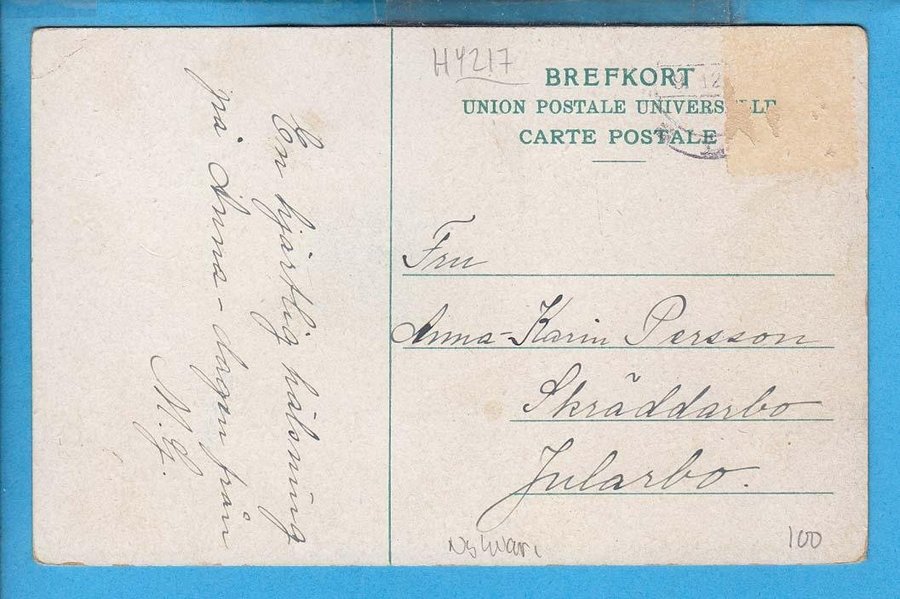 HY217
BREFKORT
UNION POSTALE UNIVERSELLE
CARTE POSTALE
En hjärtlig hälsning
på Anna-dagen från
N. G.
Fru
Anna-Karin Persson
Skräddarbo
Jularbo.
100